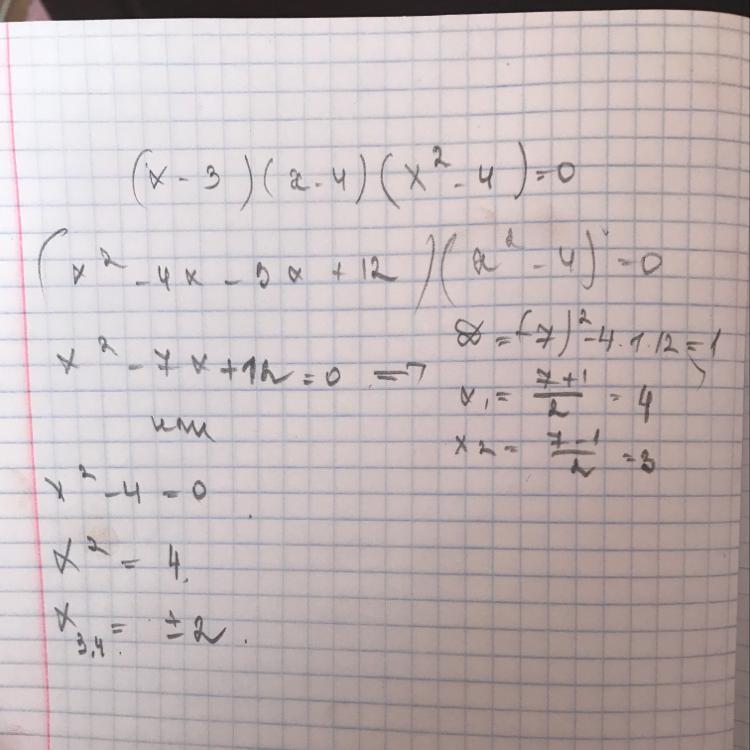 (x - 3)(x - 4)(x² - 4) = 0
(x² - 4x - 3x + 12)(x² - 4) = 0
x² - 7x + 12 = 0 =>
D = (-7)² - 4·1·12 = 1
x₁ = (7+1)/2 = 4
x₂ = (7-1)/2 = 3
или
x² - 4 = 0
x² = 4
x₃,₄ = ±2